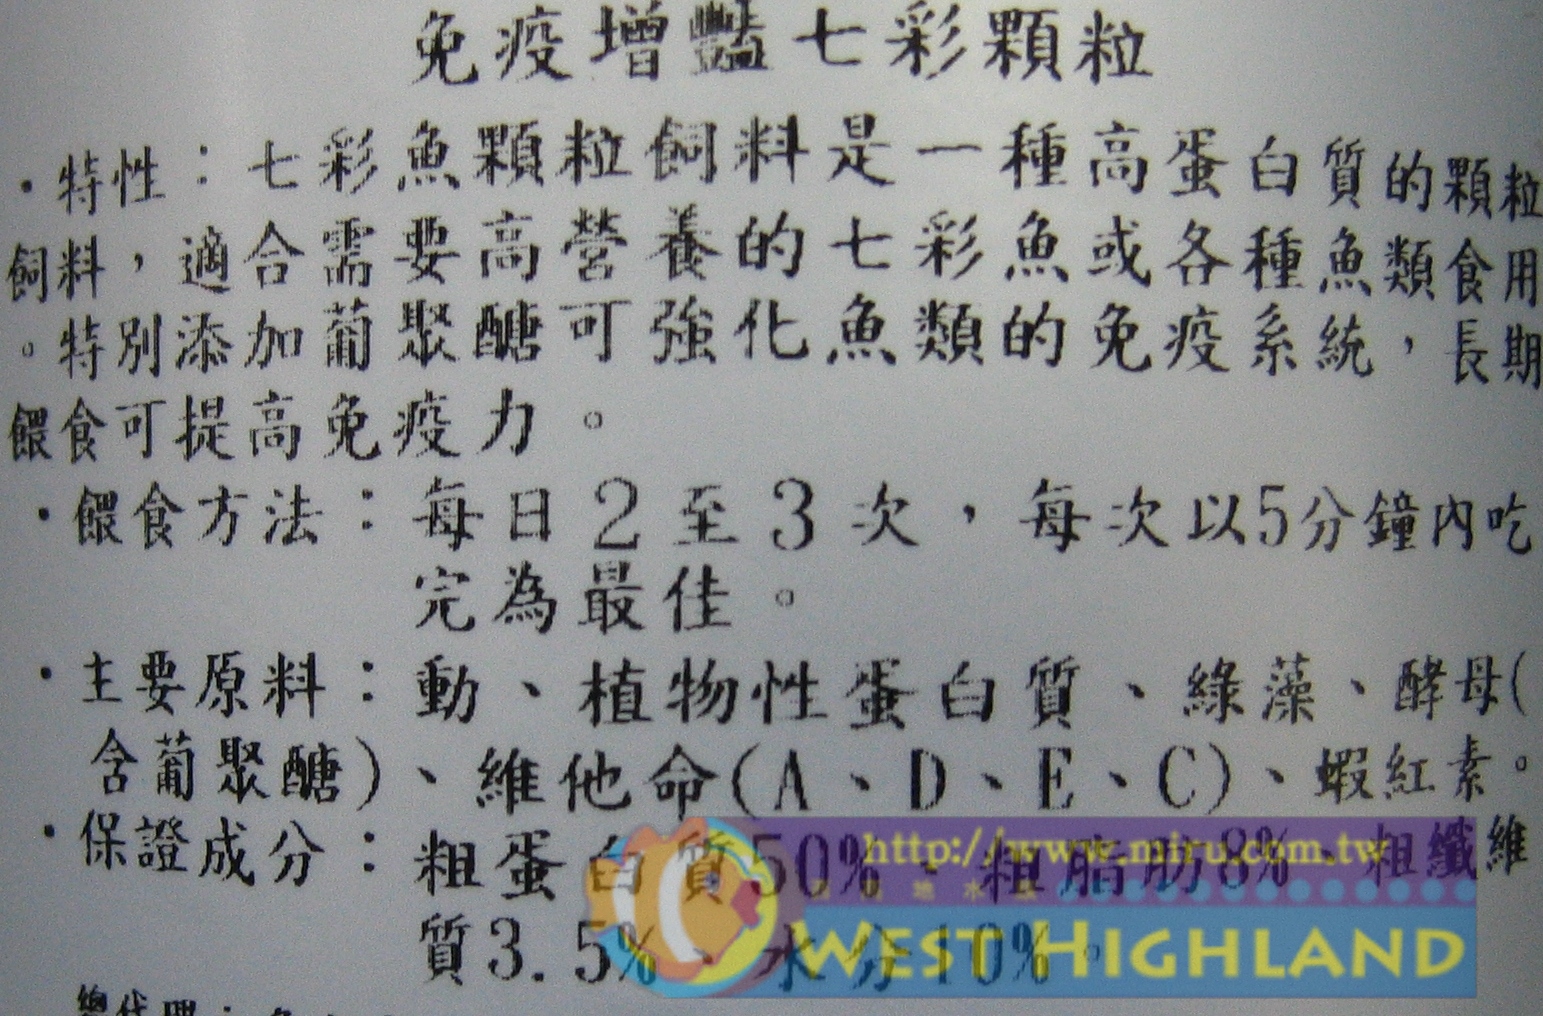 免疫增豔七彩顆粒
・特性：七彩魚顆粒飼料是一種高蛋白質的顆粒
飼料，適合需要高營養的七彩魚或各種魚類食用
。特別添加葡聚醣可強化魚類的免疫系統，長期
餵食可提高免疫力。
・餵食方法：每日2至3次，每次以5分鐘內吃
完為最佳。
・主要原料：動、植物性蛋白質、綠藻、酵母(
含葡聚醣)、維他命(A、D、E、C)、蝦紅素。
・保證成分：粗蛋白質50%、粗脂肪8%、粗纖維
質3.5%、水分10%。
http://www.miru.com.tw
WEST HIGHLAND
總代理：